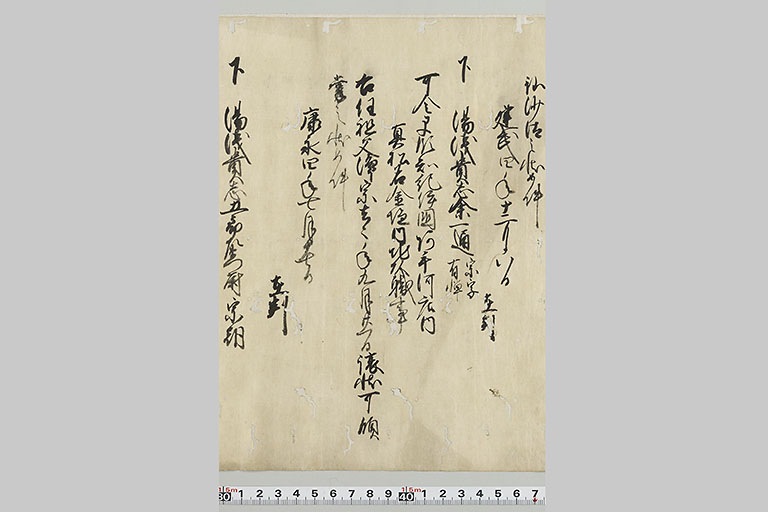 致沙汰之状如件
建武四年十二月八日
在判
下　湯浅貴志余一通
宗字
有憚
可令早領知紀伊国阿弖河庄内
真松石金垣内地頭職事
右任祖父浄宗去々年九月廿一日譲状可領
掌之状如件
康永四年七月廿七日
在判
下　湯浅貴志五郎兵衛尉宗朝
30 1 2 3 4 5 6 7 8 9 40 1 2 3 4 5 6 7